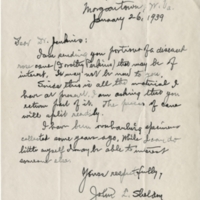 Morgantown, W. Va.
January 26, 1939
Dear Dr. Jenkins:
I am sending you portions of a diseased
rose cane (Dorothy Perkins) that may be of
interest. It may not be new to you.
Since this is all the material I
have at present, I am asking that you
return part of it. The pieces of cane
will split readily.
I have been overhauling specimens
collected some years ago. While I can do
little myself I may be able to interest
someone else.
Yours respectfully,
John L. Sheldon